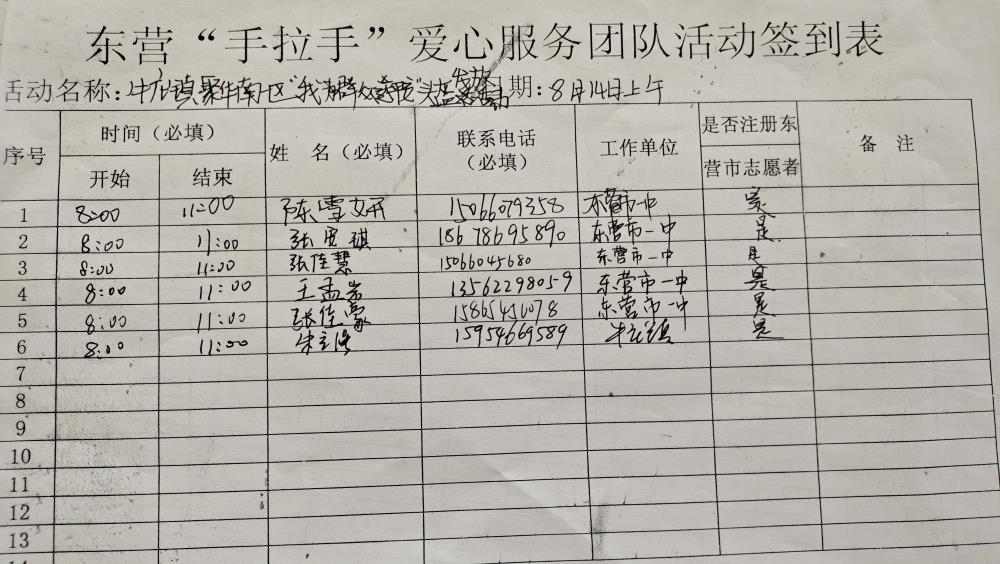 东营“手拉手”爱心服务团队活动签到表
活动名称：牛庄镇聚华南区“我为群众 日期：8月14日上午
序号 时间（必填） 姓 名（必填） 联系电话（必填） 工作单位 是否注册东营市志愿者 备 注
开始 结束
1 8:00 11:00 陈雪妍 15066079358 东营市一中 是
2 8:00 11:00 张 琪 18678695890 东营市一中 是
3 8:00 11:00 张佳慧 15066045680 东营市一中 是
4 8:00 11:00 王孟岩 13562298059 东营市一中 是
5 8:00 11:00 张佳蒙 15865451078 东营市一中 是
6 8:00 11:00 朱 15954669589 牛庄镇 是
7
8
9
10
11
12
13